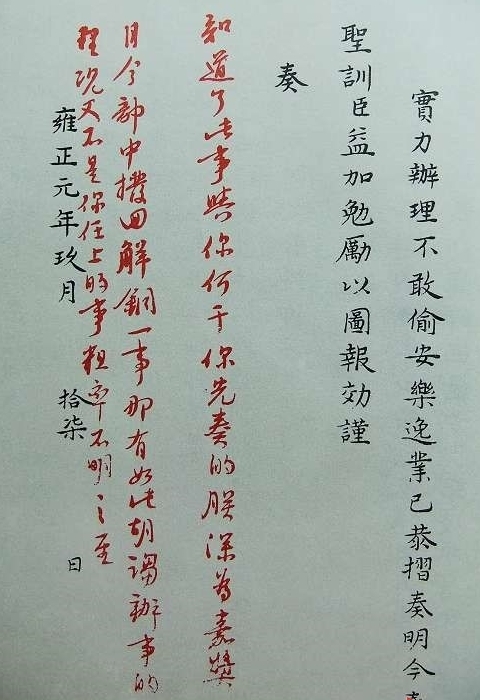 實力辦理不敢偷安樂逸業已恭摺奏明今
聖訓臣益加勉勵以圖報効謹
奏
知道了此事與你何干你先奏的朕深為嘉奬
目今部中撥回解銅一事那有如此胡謅辦事的
理況又不是你任上的事粗率不明之至
雍正元年玖月 拾柒 日